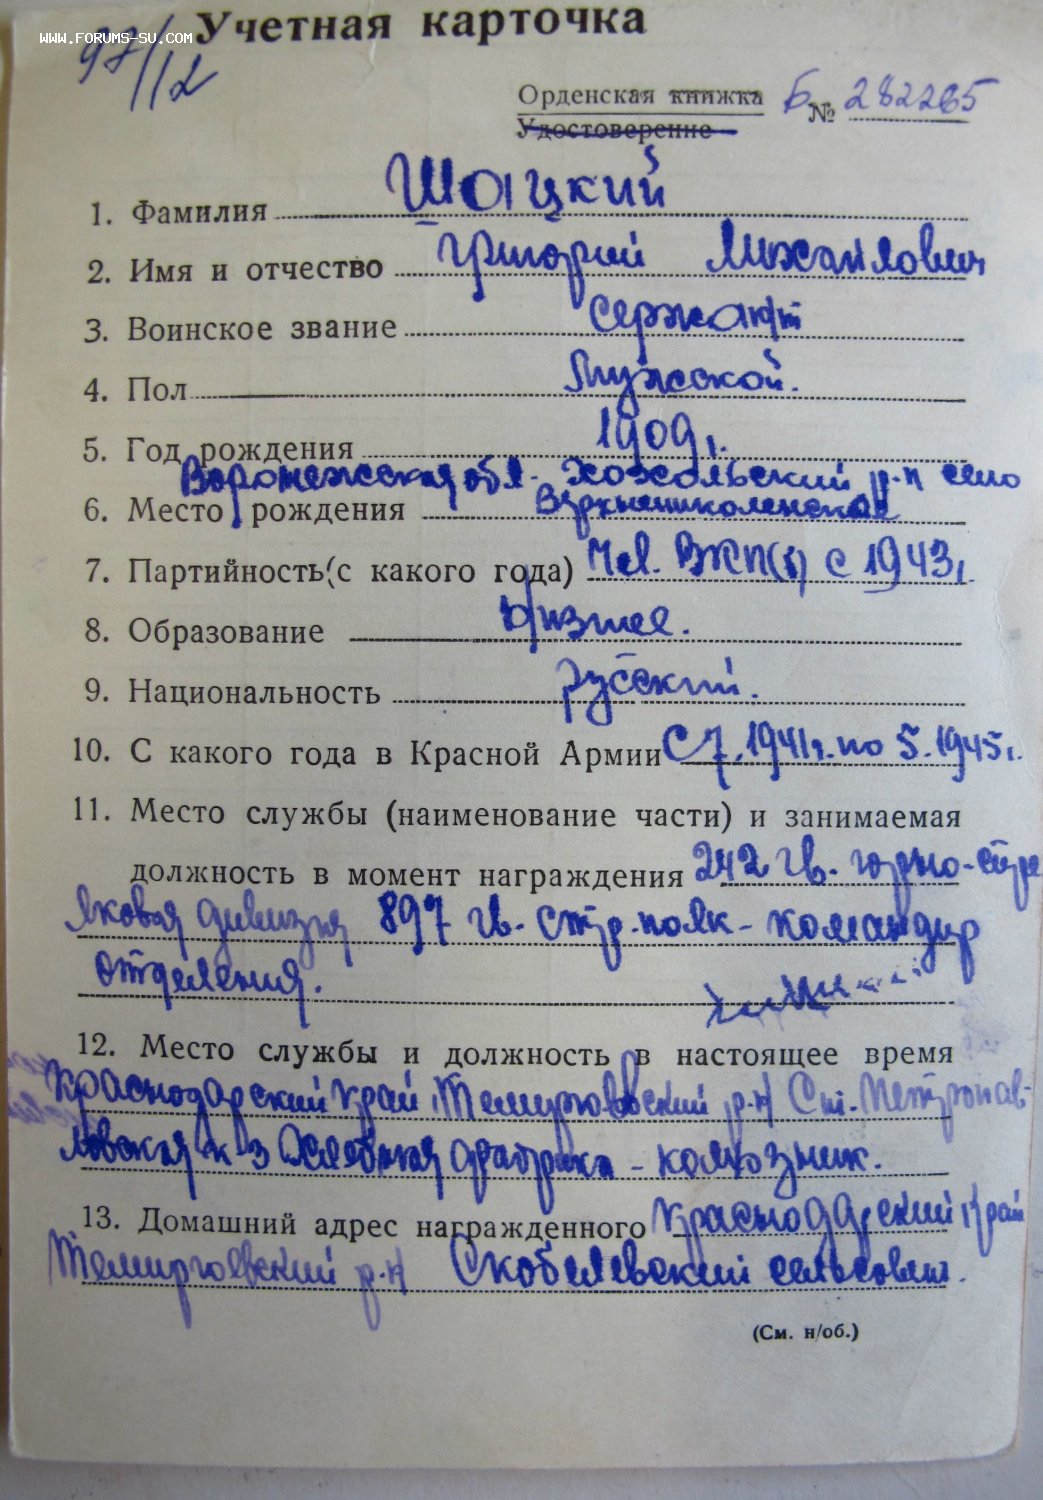 Учетная карточка
www.forums-su.com
97/12
Орденская книжка Б № 282265
Удостоверение
1. Фамилия Шацкий
2. Имя и отчество Григорий Михайлович
3. Воинское звание сержант
4. Пол Мужской.
5. Год рождения 1909 г.
Воронежская обл. Хохольский р-н село
6. Место рождения
7. Партийность (с какого года) Чл. ВКП(б) с 1943 г.
8. Образование низшее.
9. Национальность русский.
10. С какого года в Красной Армии С 7.1941 г. по 5.1945 г.
11. Место службы (наименование части) и занимаемая
должность в момент награждения 242 гв. горно-стре
лковая дивизия 897 гв. стр. полк - командир
отделения.
12. Место службы и должность в настоящее время
Краснодарский край, р-н Ст. Петропав-
ловская к-з - колхозник.
13. Домашний адрес награжденного Краснодарский край
р-н Скобелевский сельсовет.
(См. н/об.)